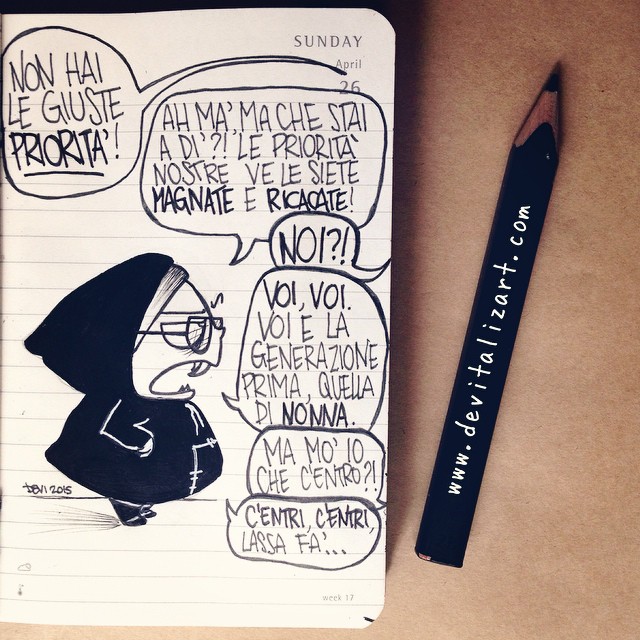 SUNDAY
April
26
NON HAI
LE GIUSTE
PRIORITA'!
AH MA', MA CHE STAI
A DI'?! LE PRIORITÀ
NOSTRE VE LE SIETE
MAGNATE E RICACATE!
NOI?!
VOI, VOI.
VOI E LA
GENERAZIONE
PRIMA, QUELLA
DI NONNA.
MA MO' IO
CHE C'ENTRO?!
C'ENTRI, C'ENTRI,
LASSA FA'...
DEVI 2015
week 17
www.devitalizart.com